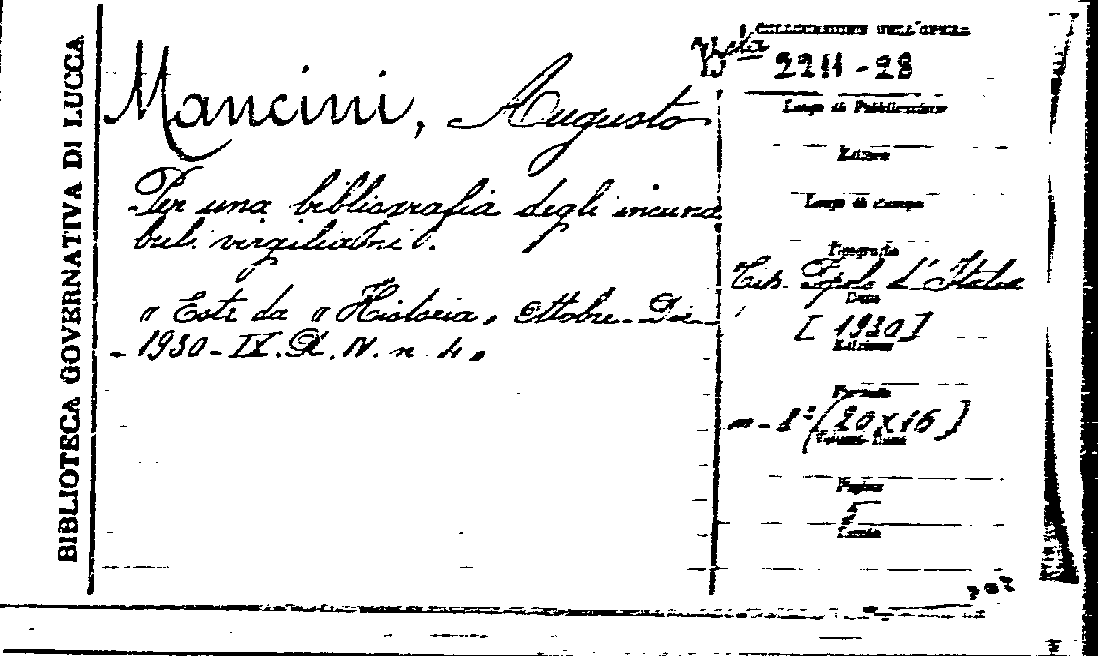 BIBLIOTECA GOVERNATIVA DI LUCCA
Mancini, Augusto
Per una bibliografia degli incuna
buli virgiliani.
" Estr. da " Historia, Ottobre-Dic-
- 1930-IX. A. IV. n. 4 "
COLLOCAZIONE DELL'OPERA
Bta 2211-28
Luogo di Pubblicazione
Editore
Luogo di stampa
Tipografia
Tip. Popolo d'Italia
Data
[1930]
Edizione
Formato
in-8° (20x16)
Volume
Pagine
5